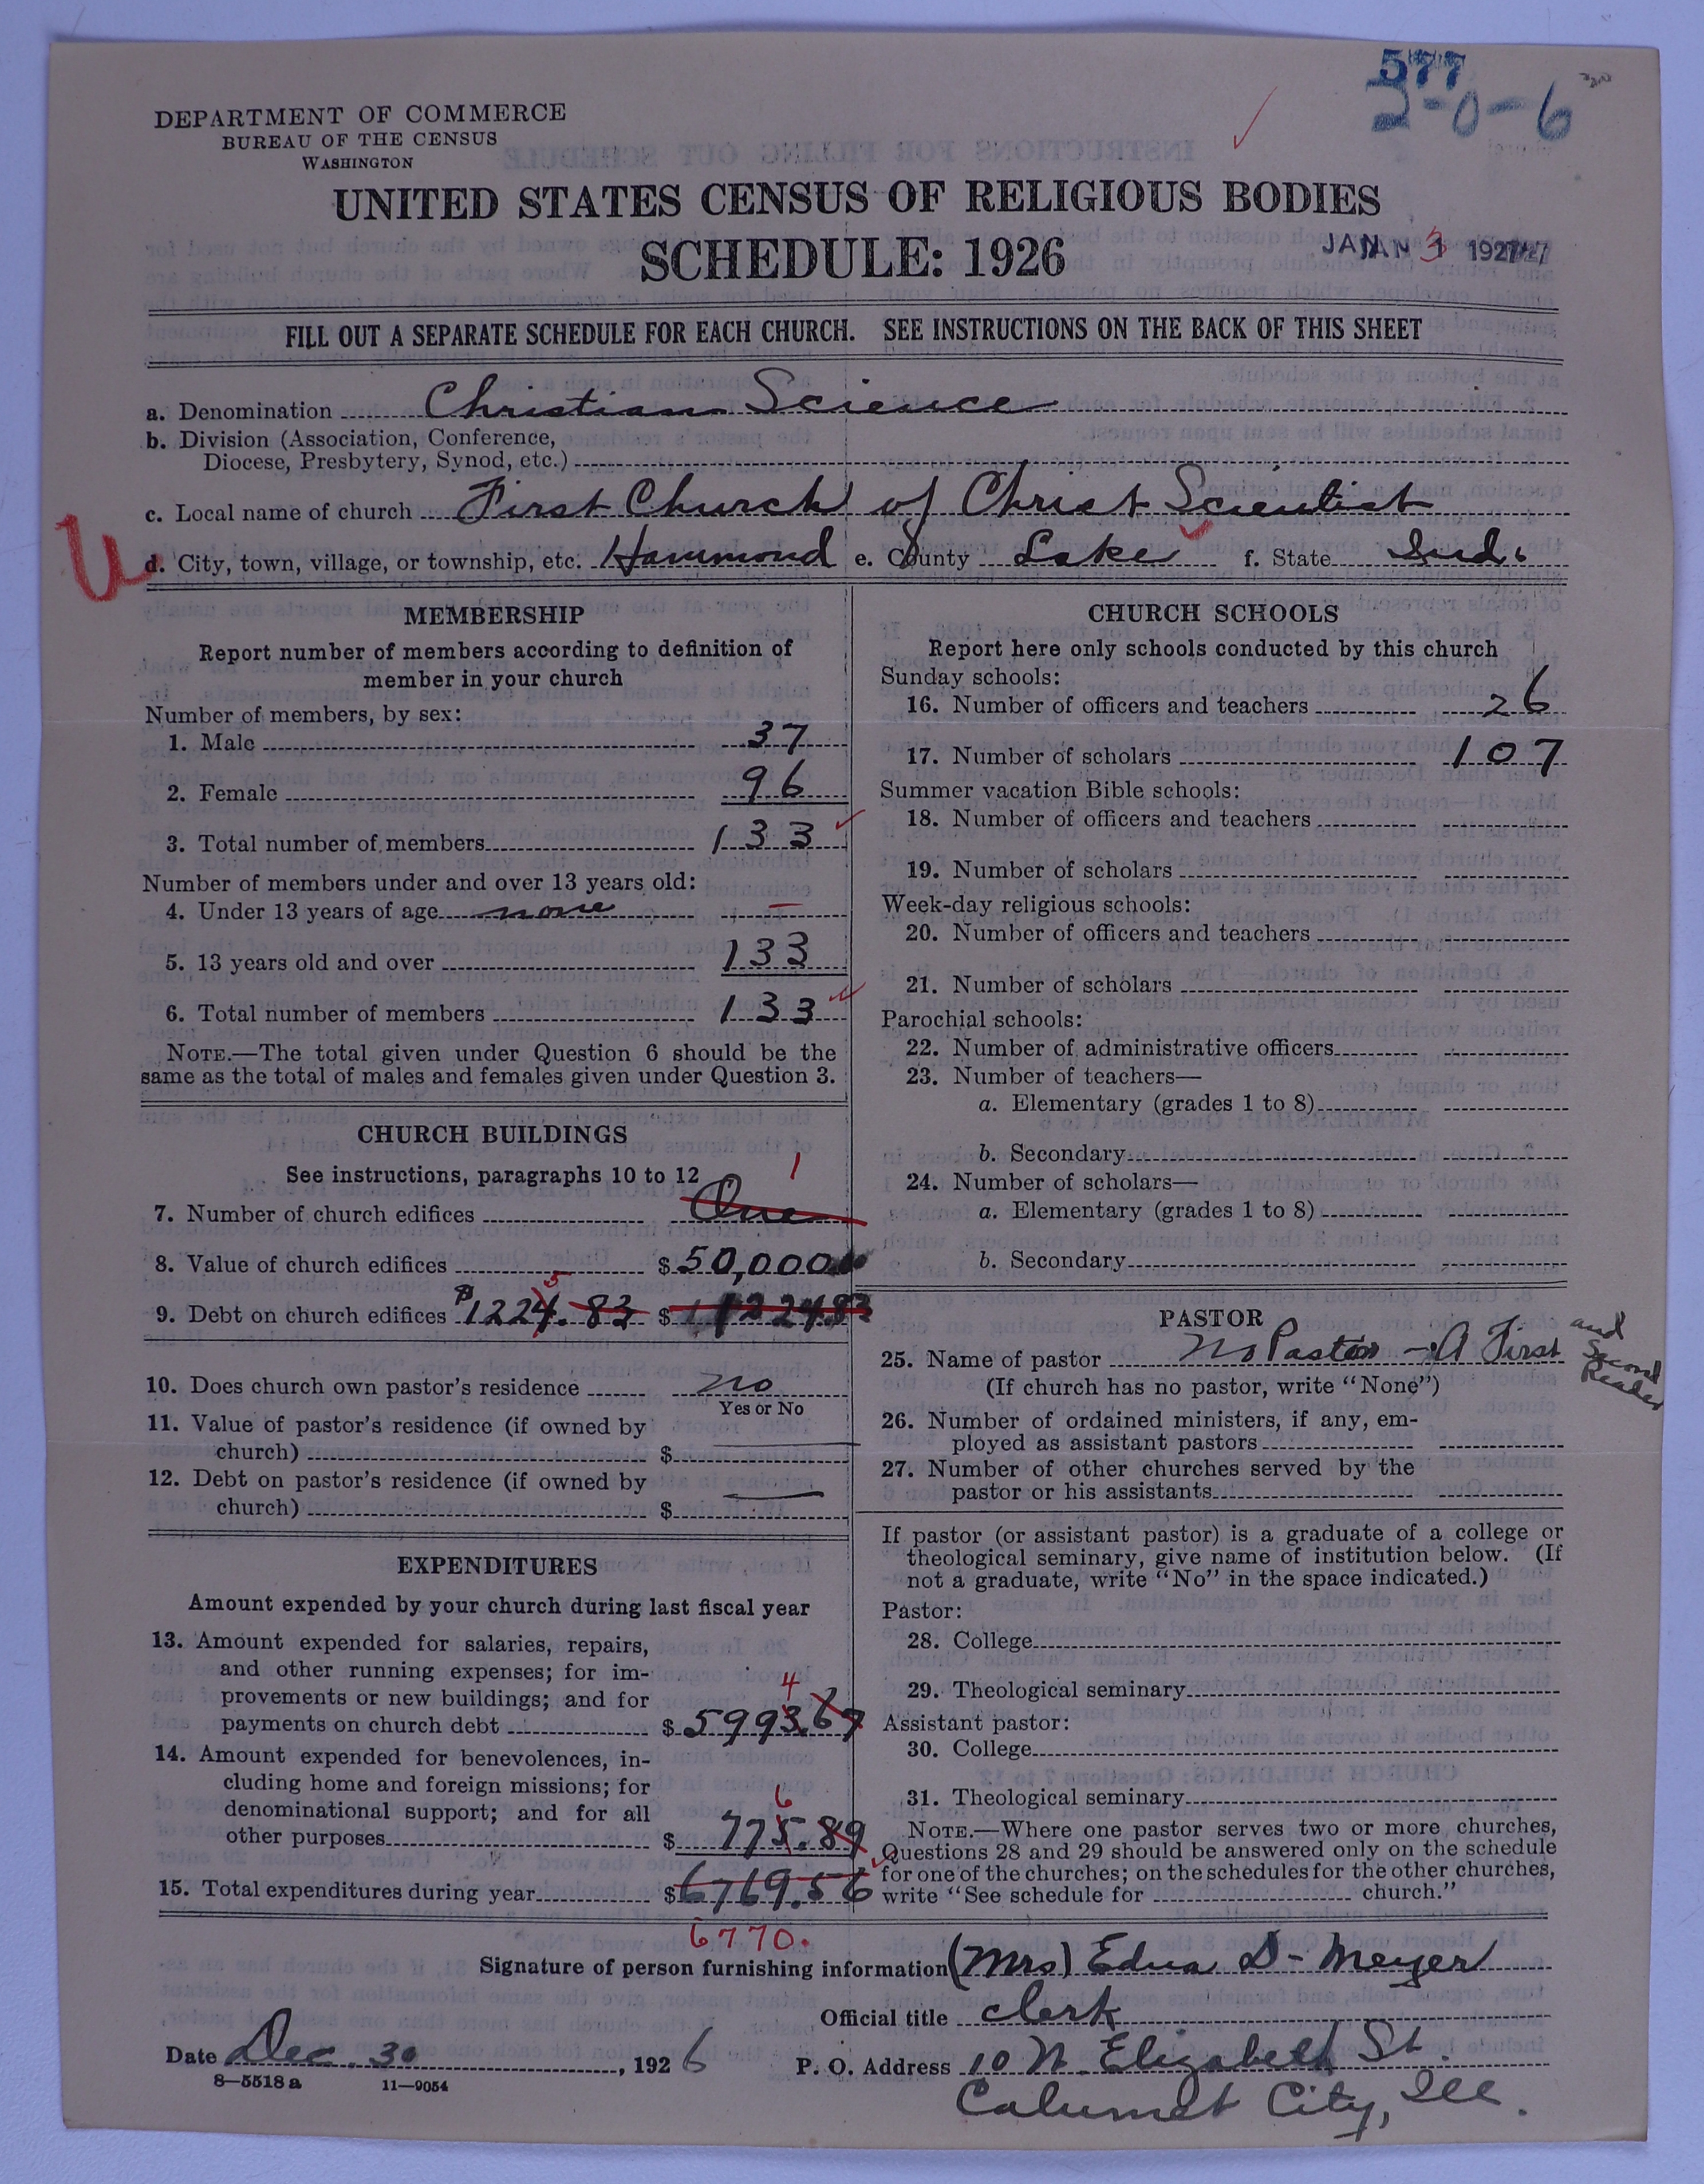 577
2-0-6
DEPARTMENT OF COMMERCE
BUREAU OF THE CENSUS
WASHINGTON
UNITED STATES CENSUS OF RELIGIOUS BODIES
SCHEDULE: 1926
JAN 3 1927
FILL OUT A SEPARATE SCHEDULE FOR EACH CHURCH. SEE INSTRUCTIONS ON THE BACK OF THIS SHEET
a. Denomination Christian Science
b. Division (Association, Conference,
Diocese, Presbytery, Synod, etc.)
c. Local name of church First Church of Christ Scientist
U
d. City, town, village, or township, etc. Hammond e. County Lake f. State Ind.
MEMBERSHIP
Report number of members according to definition of
member in your church
Number of members, by sex:
1. Male 37
2. Female 96
3. Total number of members 133
Number of members under and over 13 years old:
4. Under 13 years of age none —
5. 13 years old and over 133
6. Total number of members 133
NOTE.—The total given under Question 6 should be the
same as the total of males and females given under Question 3.
CHURCH BUILDINGS
See instructions, paragraphs 10 to 12
1
7. Number of church edifices One
8. Value of church edifices $50,000.00
5
9. Debt on church edifices $1224.83 $ 1224.83
10. Does church own pastor's residence no
Yes or No
11. Value of pastor's residence (if owned by
church) $
12. Debt on pastor's residence (if owned by
church) $
EXPENDITURES
Amount expended by your church during last fiscal year
13. Amount expended for salaries, repairs,
and other running expenses; for im-
provements or new buildings; and for
4
payments on church debt $5993.67
14. Amount expended for benevolences, in-
cluding home and foreign missions; for
denominational support; and for all
6
other purposes $ 775.89
15. Total expenditures during year $6769.56
6770.
CHURCH SCHOOLS
Report here only schools conducted by this church
Sunday schools:
16. Number of officers and teachers 26
17. Number of scholars 107
Summer vacation Bible schools:
18. Number of officers and teachers
19. Number of scholars
Week-day religious schools:
20. Number of officers and teachers
21. Number of scholars
Parochial schools:
22. Number of administrative officers
23. Number of teachers—
a. Elementary (grades 1 to 8)
b. Secondary
24. Number of scholars—
a. Elementary (grades 1 to 8)
b. Secondary
PASTOR
25. Name of pastor No Pastor - A First and Second Reader
(If church has no pastor, write "None")
26. Number of ordained ministers, if any, em-
ployed as assistant pastors
27. Number of other churches served by the
pastor or his assistants
If pastor (or assistant pastor) is a graduate of a college or
theological seminary, give name of institution below. (If
not a graduate, write "No" in the space indicated.)
Pastor:
28. College
29. Theological seminary
Assistant pastor:
30. College
31. Theological seminary
NOTE.—Where one pastor serves two or more churches,
Questions 28 and 29 should be answered only on the schedule
for one of the churches; on the schedules for the other churches,
write "See schedule for church."
Signature of person furnishing information (Mrs) Edna D- Meyer
Official title clerk
Date Dec. 30, 1926 P. O. Address 10 N. Elizabeth St.
8—5518a 11—9054
Calumet City, Ill.